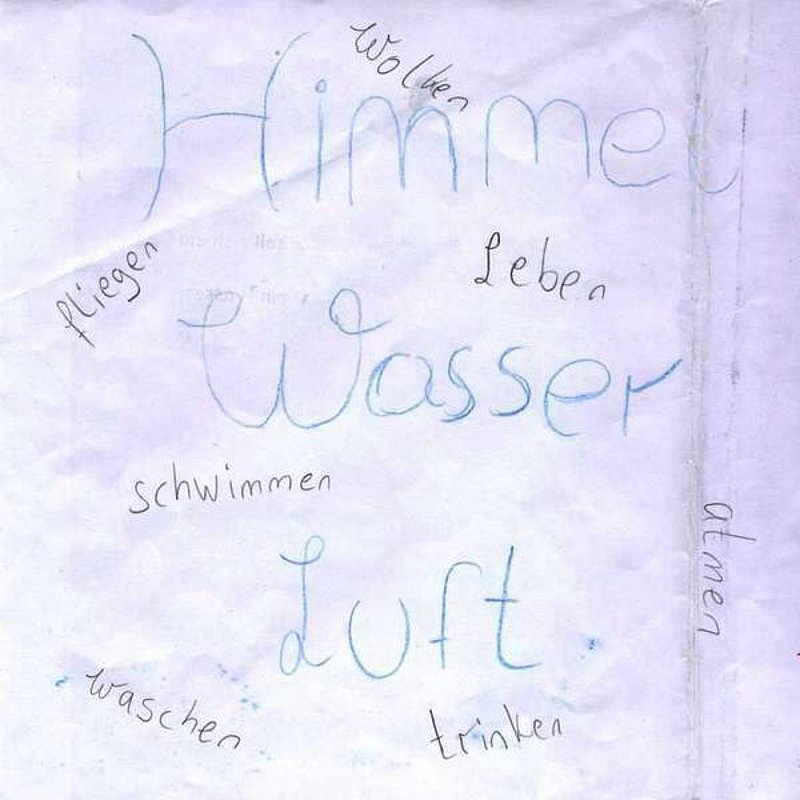 Wolken
Himmel
fliegen
Leben
Wasser
schwimmen
atmen
Luft
waschen
trinken